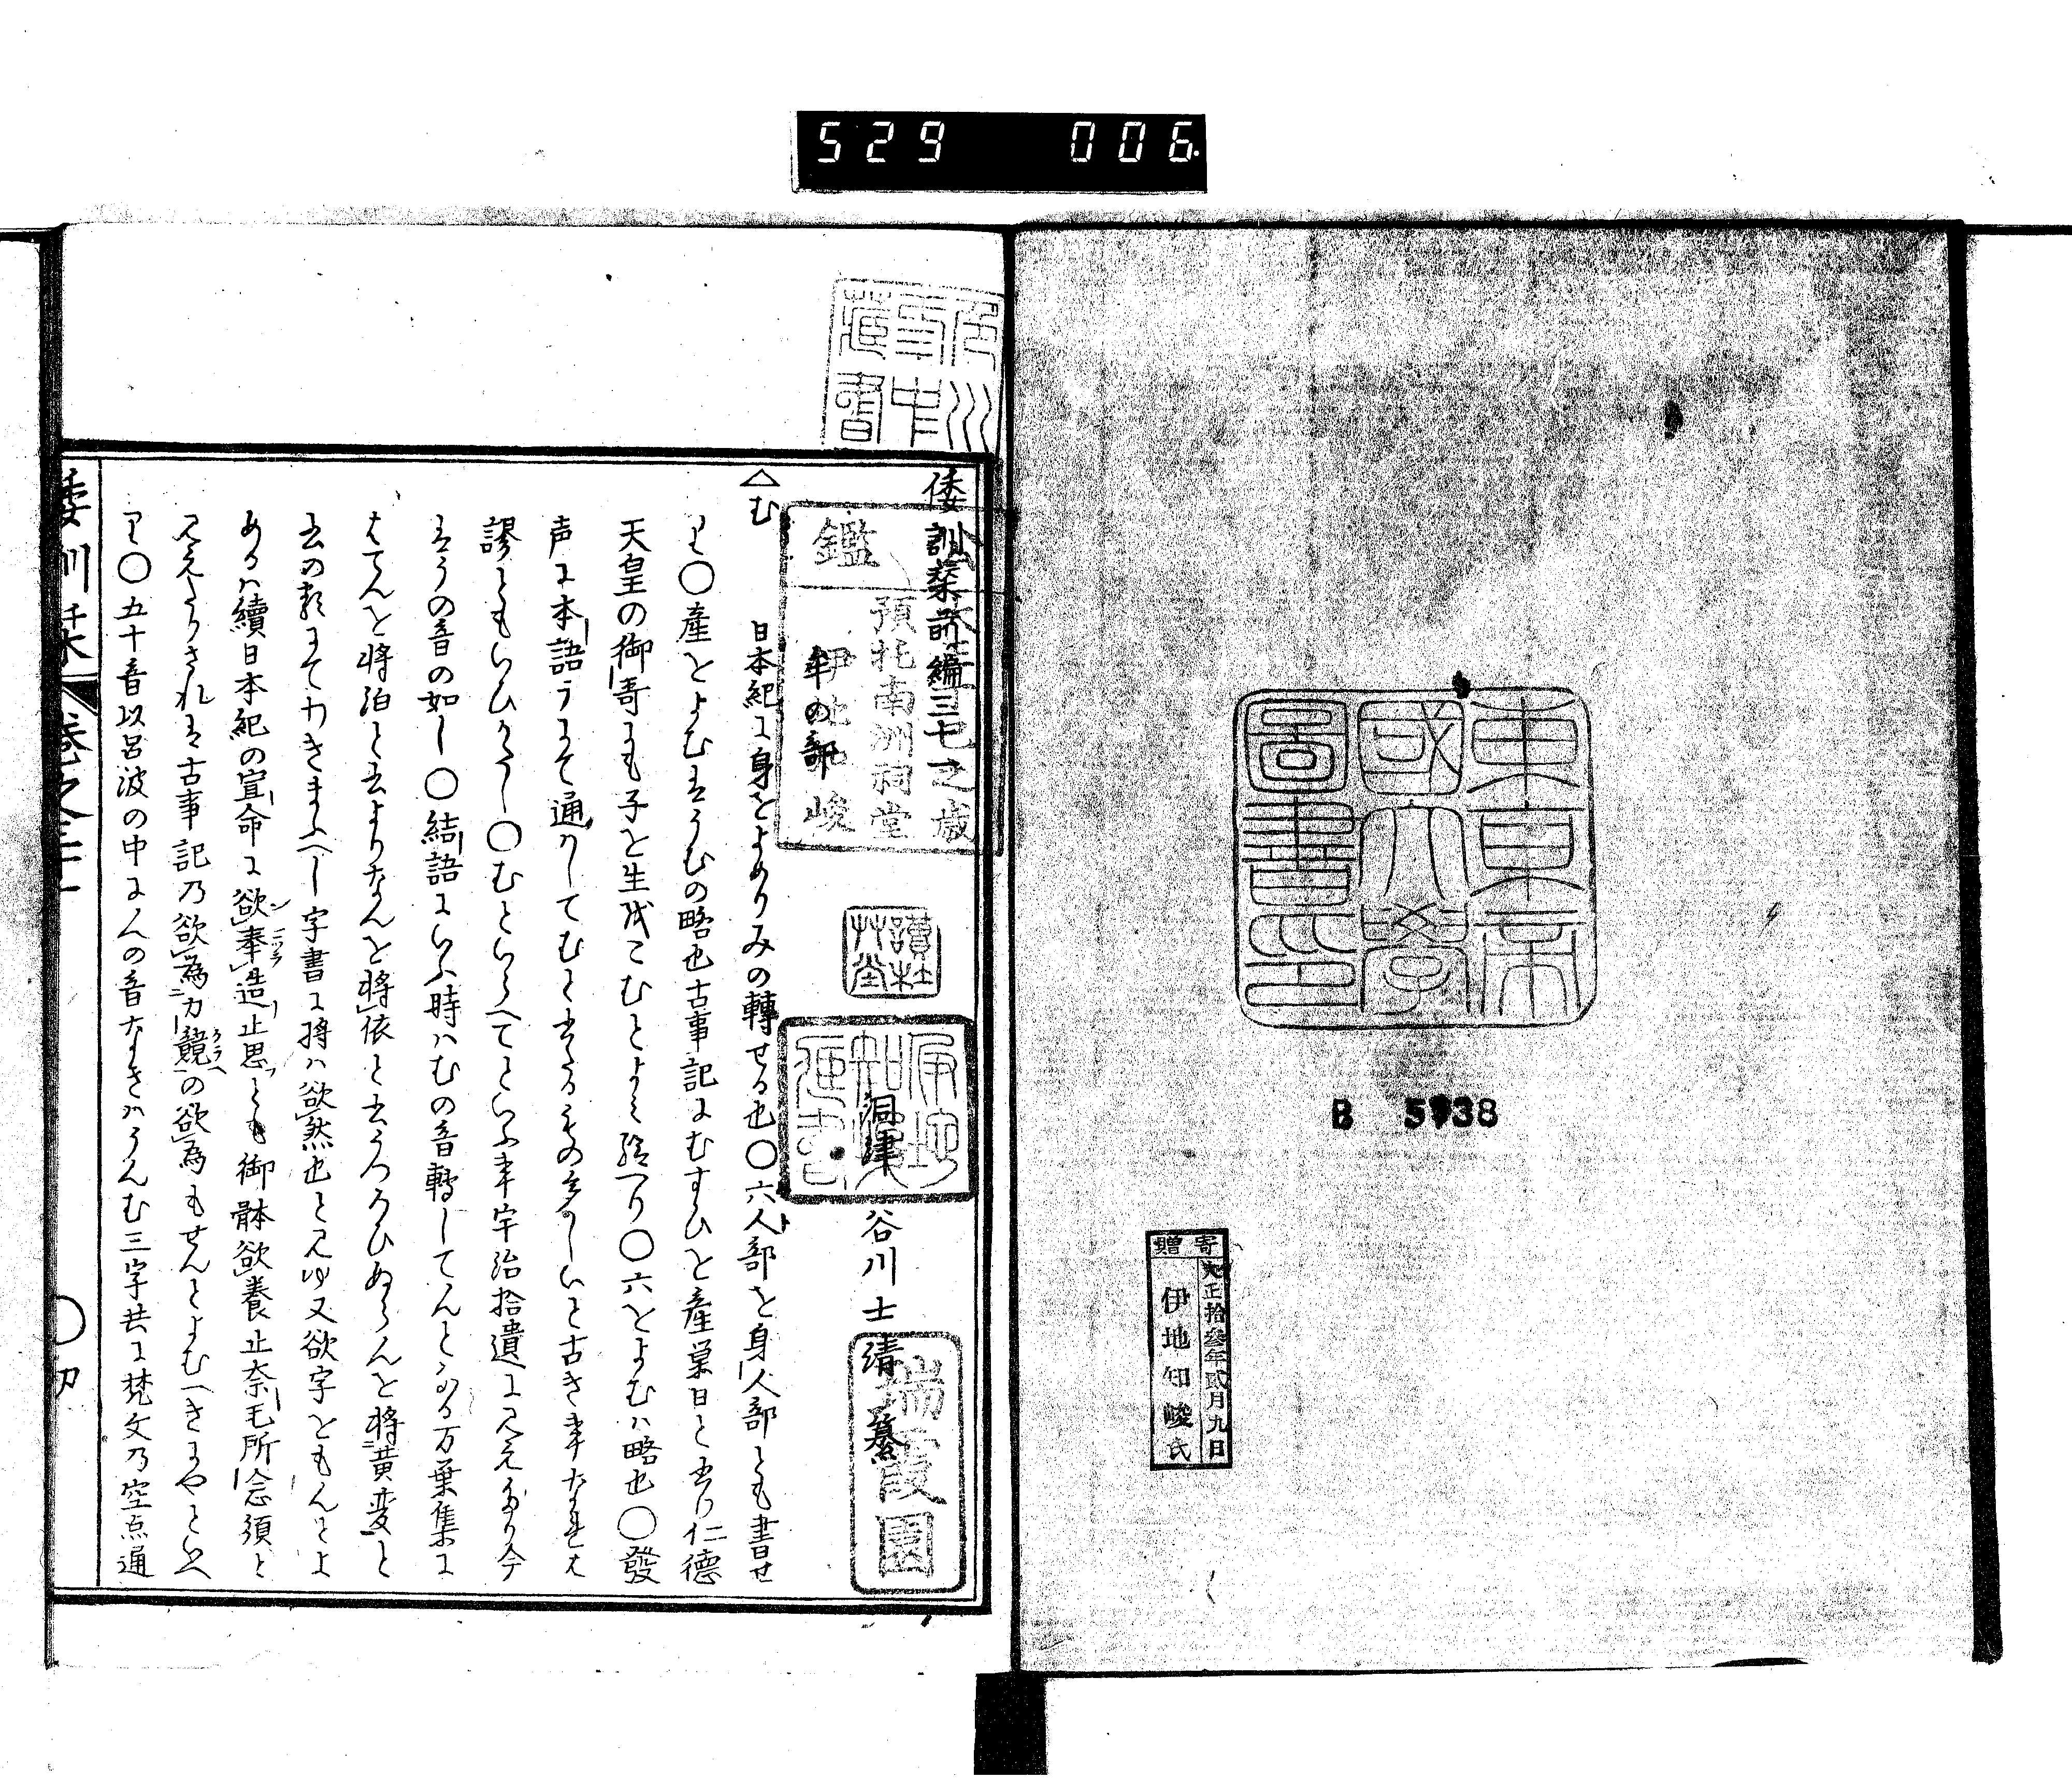 529 006
東京帝
國大學
圖書印
B 5938
寄贈
大正拾參年貳月九日
伊地知峻氏
倭訓栞前編三十一
洞津 谷川士清 纂
牟の部
鑑
預托南洲祠堂
伊地知峻
讀杜艸堂
瑞霞園
△む
日本紀に身をよめりみの轉せる也〇六人部を身人部とも書せ
り〇産をよむはうむの略也古事記にむすひを産巣日と書り仁德
天皇の御哥にも子を生伐こむとよみ給へり〇六をよむハ略也〇發
声に本語うまて通ハしてむと書る
謬ともいひかたし〇むといらへてといふ事宇治拾遺に見えたり今
はうの音の如し〇結語にいふ時ハむの音轉してんとなる万葉集に
はてんを將泊と書よりなんを將依と書うつろひぬらんを將黄変と
書の類にてわきまふへし字書に將ハ欲然也と見ゆ又欲字をもんとよ
あるハ續日本紀の宣命に欲奉造止思とも御躰欲養止奈毛所念須と
見えたりされは古事記乃欲為力競の欲為もせんとよむへきにやといへ
り〇五十音以呂波の中にんの音なきハうんむ三字共に梵文乃空点通
倭訓栞 卷之三十一 〇初